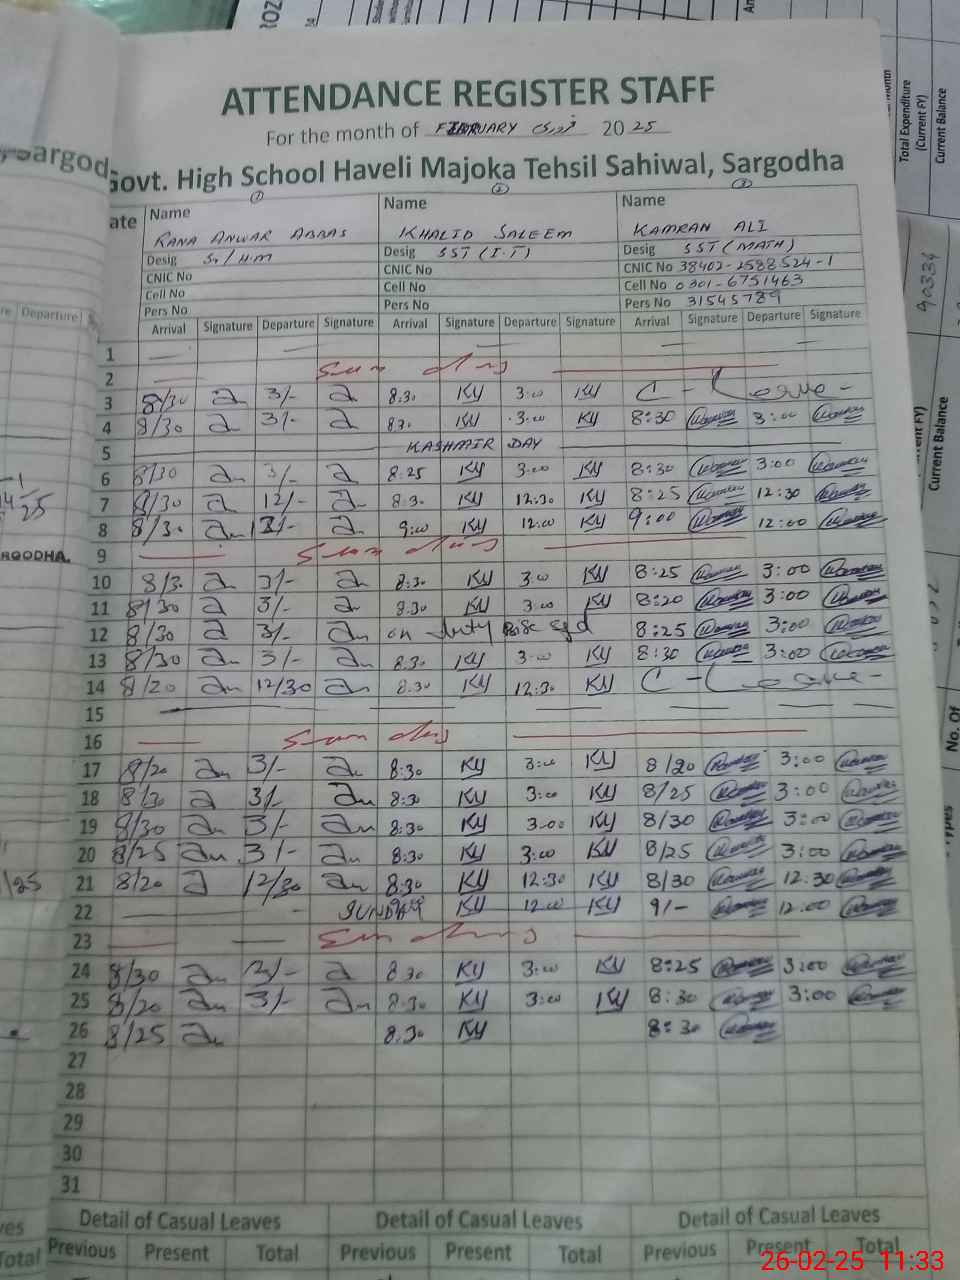 ATTENDANCE REGISTER STAFF
For the month of FEBRUARY 2025
Govt. High School Haveli Majoka Tehsil Sahiwal, Sargodha
ate Name Name Name
RANA ANWAR ABBAS KHALID SALEEM KAMRAN ALI
Desig S./H.M Desig SST (I.T) Desig SST (MATH)
CNIC No CNIC No CNIC No 38402-2588524-1
Cell No Cell No Cell No 0301-6751463
Pers No Pers No Pers No 31545789
Arrival Signature Departure Signature Arrival Signature Departure Signature Arrival Signature Departure Signature
1
2 Sunday
3 8/30 3/- 8.30 KY 3:00 KY C-Leave-
4 8/30 3/- 8.30 KY 3:00 KY 8:30 3:00
5 KASHMIR DAY
6 8/30 3/- 8:25 KY 3:00 KY 8:30 3:00
7 8/30 12/- 8:30 KY 12:30 KY 8:25 12:30
8 8/30 9:00 KY 12:00 KY 9:00 12:00
9 Sunday
10 8/30 3/- 8:30 KY 3:00 KY 8:25 3:00
11 8/30 3/- 8:30 KY 3:00 KY 8:20 3:00
12 8/30 3/- on duty 8:25 3:00
13 8/30 3/- 8:30 KY 3:00 KY 8:30 3:00
14 8/20 12/30 8:30 KY 12:30 KY C-Leave-
15
16 Sunday
17 8/20 3/- 8:30 KY 3:00 KY 8/20 3:00
18 8/30 3/- 8:30 KY 3:00 KY 8/25 3:00
19 8/30 3/- 8:30 KY 3:00 KY 8/30 3:00
20 8/25 3/- 8:30 KY 3:00 KY 8/25 3:00
21 8/20 12/30 8:30 KY 12:30 KY 8/30 12:30
22 KY 12:00 KY 9/- 12:00
23 Sunday
24 8/30 3/- 8:30 KY 3:00 KY 8:25 3:00
25 8/20 3/- 8:30 KY 3:00 KY 8:30 3:00
26 8/25 8:30 KY 8:30
27
28
29
30
31
Detail of Casual Leaves Detail of Casual Leaves Detail of Casual Leaves
Previous Present Total Previous Present Total Previous Present Total
26-02-25 11:33
Total Expenditure
(Current FY)
Current Balance
90334
Current Balance
No. Of
Departure
RGODHA.
Total